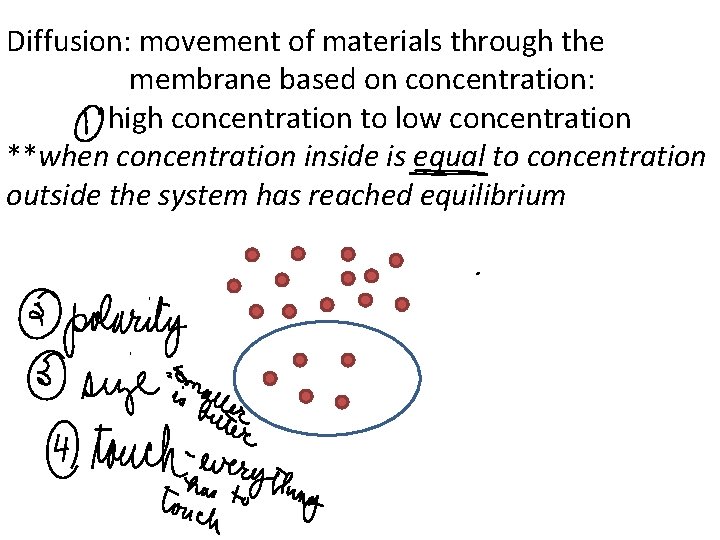 Diffusion: movement of materials through the
membrane based on concentration:
① high concentration to low concentration
**when concentration inside is equal to concentration
outside the system has reached equilibrium
② polarity
③ size - smaller
is better
④ touch - everything
has to
touch